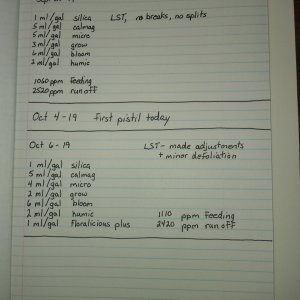 1 ml/gal silica LST, no breaks, no splits
5 ml/gal calmag
5 ml/gal micro
3 ml/gal grow
6 ml/gal bloom
2 ml/gal humic
1060 ppm feeding
2520 ppm run off
Oct 4-19 first pistil today
Oct 6-19 LST- made adjustments
+ minor defoliation
1 ml/gal silica
5 ml/gal calmag
4 ml/gal micro
2 ml/gal grow
6 ml/gal bloom
2 ml/gal humic 1110 ppm feeding
1 ml/gal Floralicious plus 2420 ppm run off